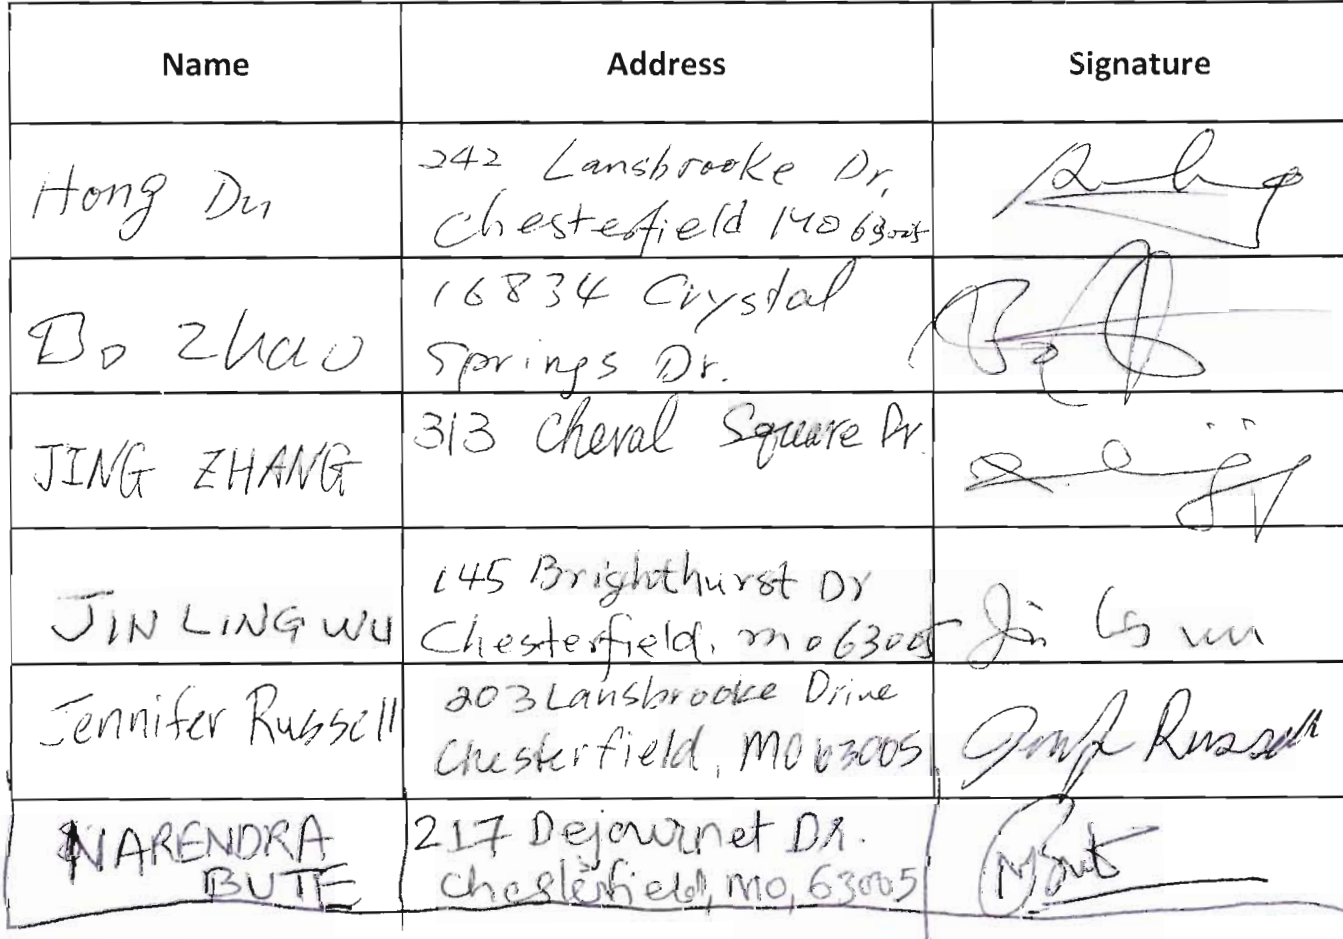 Name Address Signature
Hong Du
242 Lansbrooke Dr,
Chesterfield MO 63005
Bo Zhao
16834 Crystal
Springs Dr.
JING ZHANG
313 Cheval Square Dr.
JIN LING WU
145 Brighthurst Dr
Chesterfield, mo 63005
Jennifer Russell
203 Lansbrooke Drive
Chesterfield, MO 63005
Russell
NARENDRA
BUTE
217 Dejournet Dr.
Chesterfield, MO, 63005